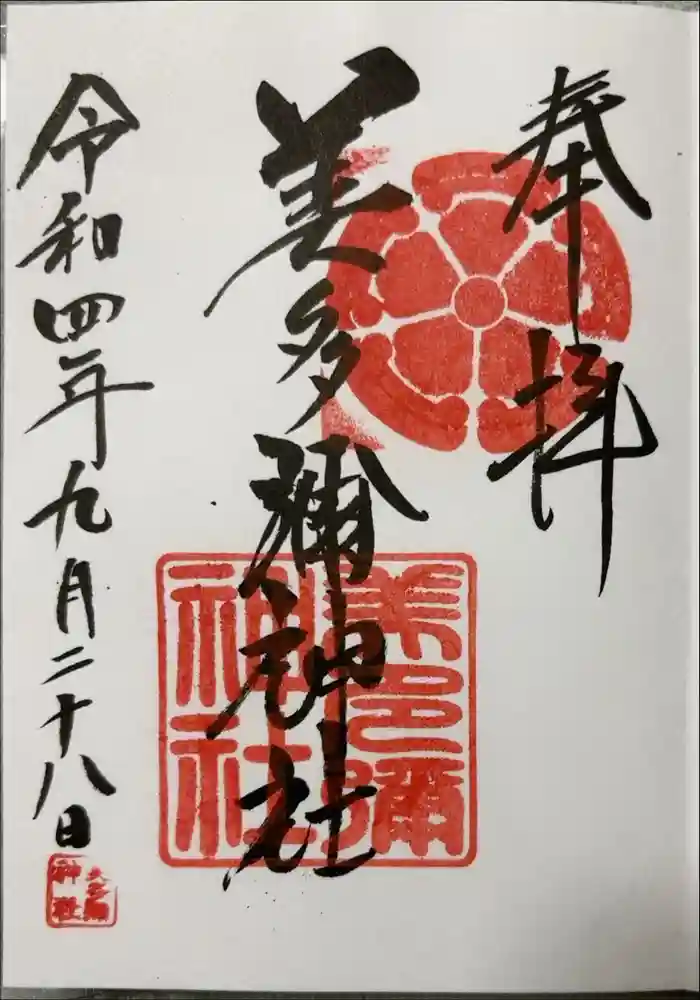 奉拝
美多彌神社
令和四年九月二十八日
美多彌
神社